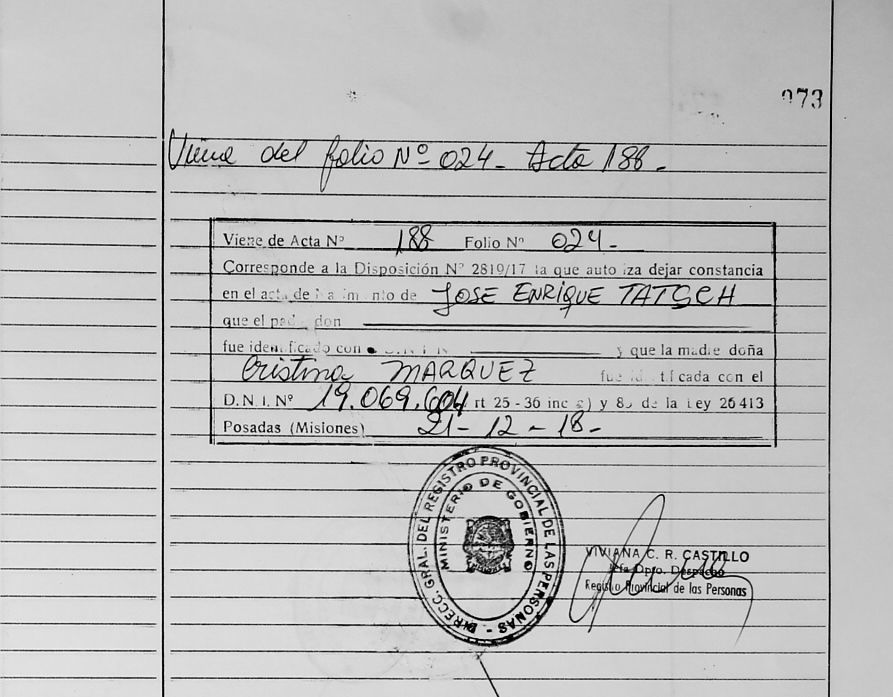 073
Viene del folio Nº 024 - Acta 188 -
Viene de Acta Nº 188 Folio Nº 024 -
Corresponde a la Disposición Nº 2819/17 la que auto iza dejar constancia
en el acta de na im nto de JOSE ENRIQUE TATSCH
que el pad don
fue identificado con D.N.I. Nº y que la madre doña
Cristina MARQUEZ fue id tificada con el
D.N.I. Nº 19.069.604 rt 25 - 36 inc c) y 85 de la Ley 26413
Posadas (Misiones) 21 - 12 - 18 -
DIRECC. GRAL. DEL REGISTRO PROVINCIAL DE LAS PERSONAS -
MINISTERIO DE GOBIERNO
VIVIANA C. R. CASTILLO
Jefa Dpto. Despacho
Registro Provincial de las Personas